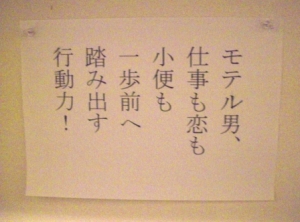 モテル男、
仕事も恋も
小便も
一歩前へ
踏み出す
行動力！